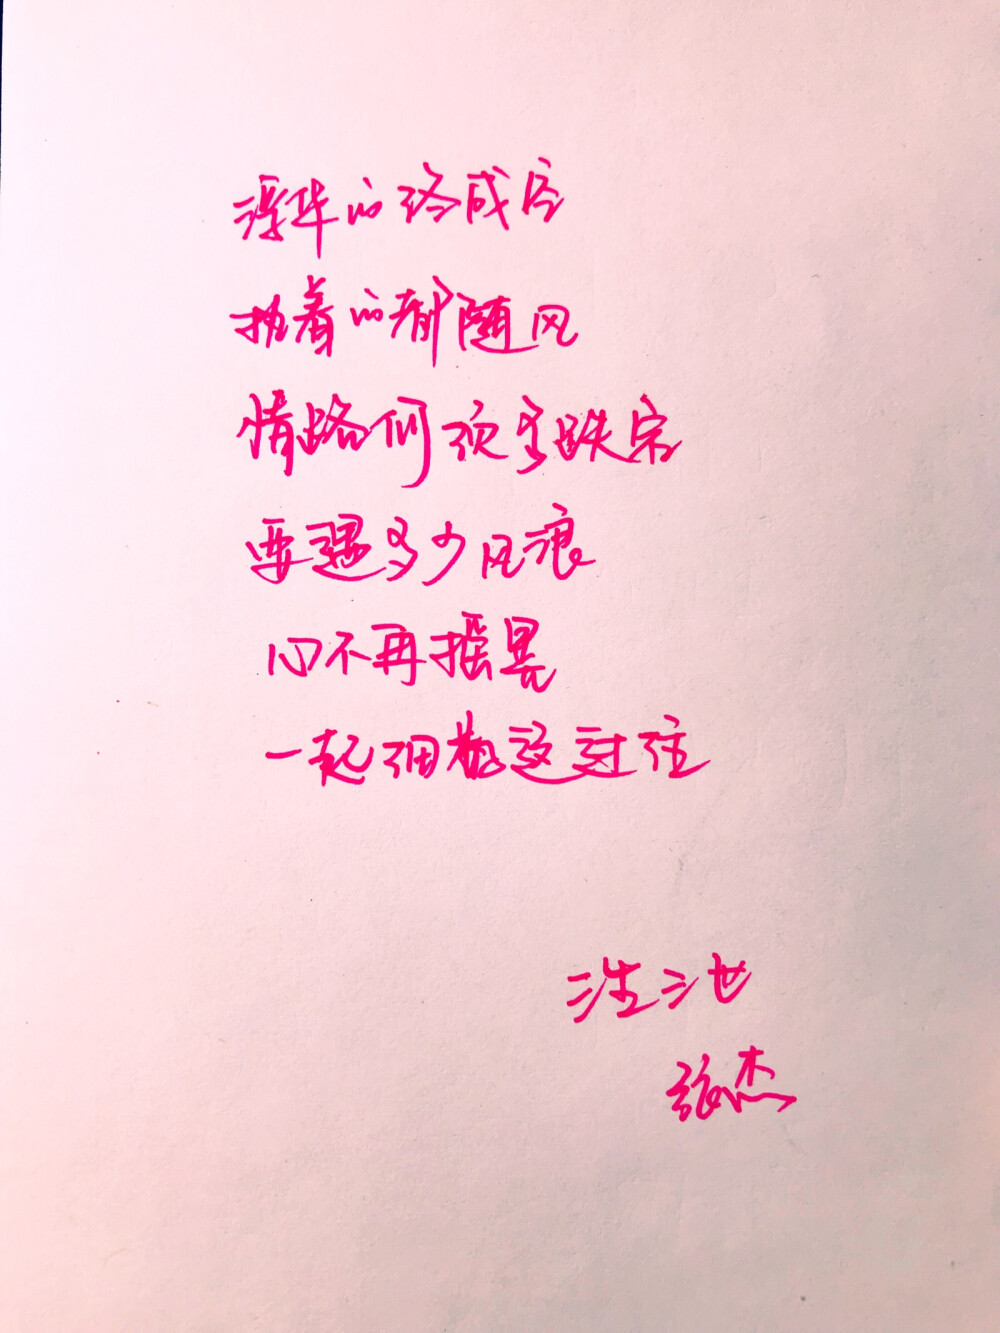 浮华的终成空
执着的都随风
情路何须多跌宕
要遇多少风浪
心不再摇晃
一起细数这过往
三生三世
张杰